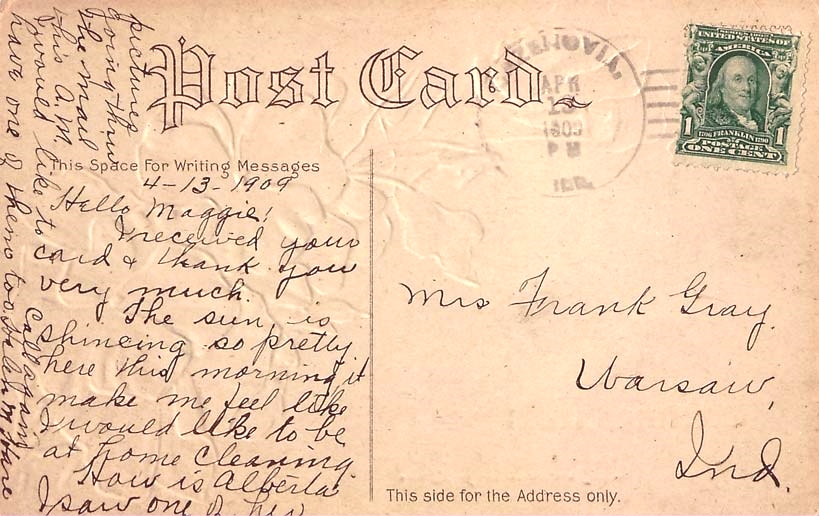 Post Card
APR
1909
P M
ILL.
UNITED STATES OF
AMERICA
1
1706 FRANKLIN 1790
1
POSTAGE
ONE CENT
This Space For Writing Messages
4-13-1909
Hello Maggie!
I received your
card & thank you
very much.
The sun is
shineing so pretty
here this morning it
make me feel like
I would like to be
at home cleaning
How is Alberta
I saw one of her
pictures
going thru
the mail
this A.M.
I would like to
have one of them too
Call again
Mrs Frank Gray.
Warsaw,
Ind.
This side for the Address only.